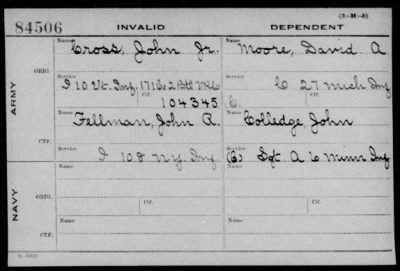 (3-H-3)
84506 INVALID DEPENDENT
Name Name
Cross, John Jr. Moore, David A
ARMY
ORIG.
Service Service
I 10 Vt. Inf. 171 Co 2 Btl VRC C 27 Mich Inf
Ctf. Ctf.
104345 C.
Name Name
Fellman, John R. Colledge, John
CTF.
Service
I 108 N.Y. Inf. (C) Sgt. A 6 Minn Inf
Name Name
NAVY
ORIG.
Ctf. Ctf.
Name Name
CTF.